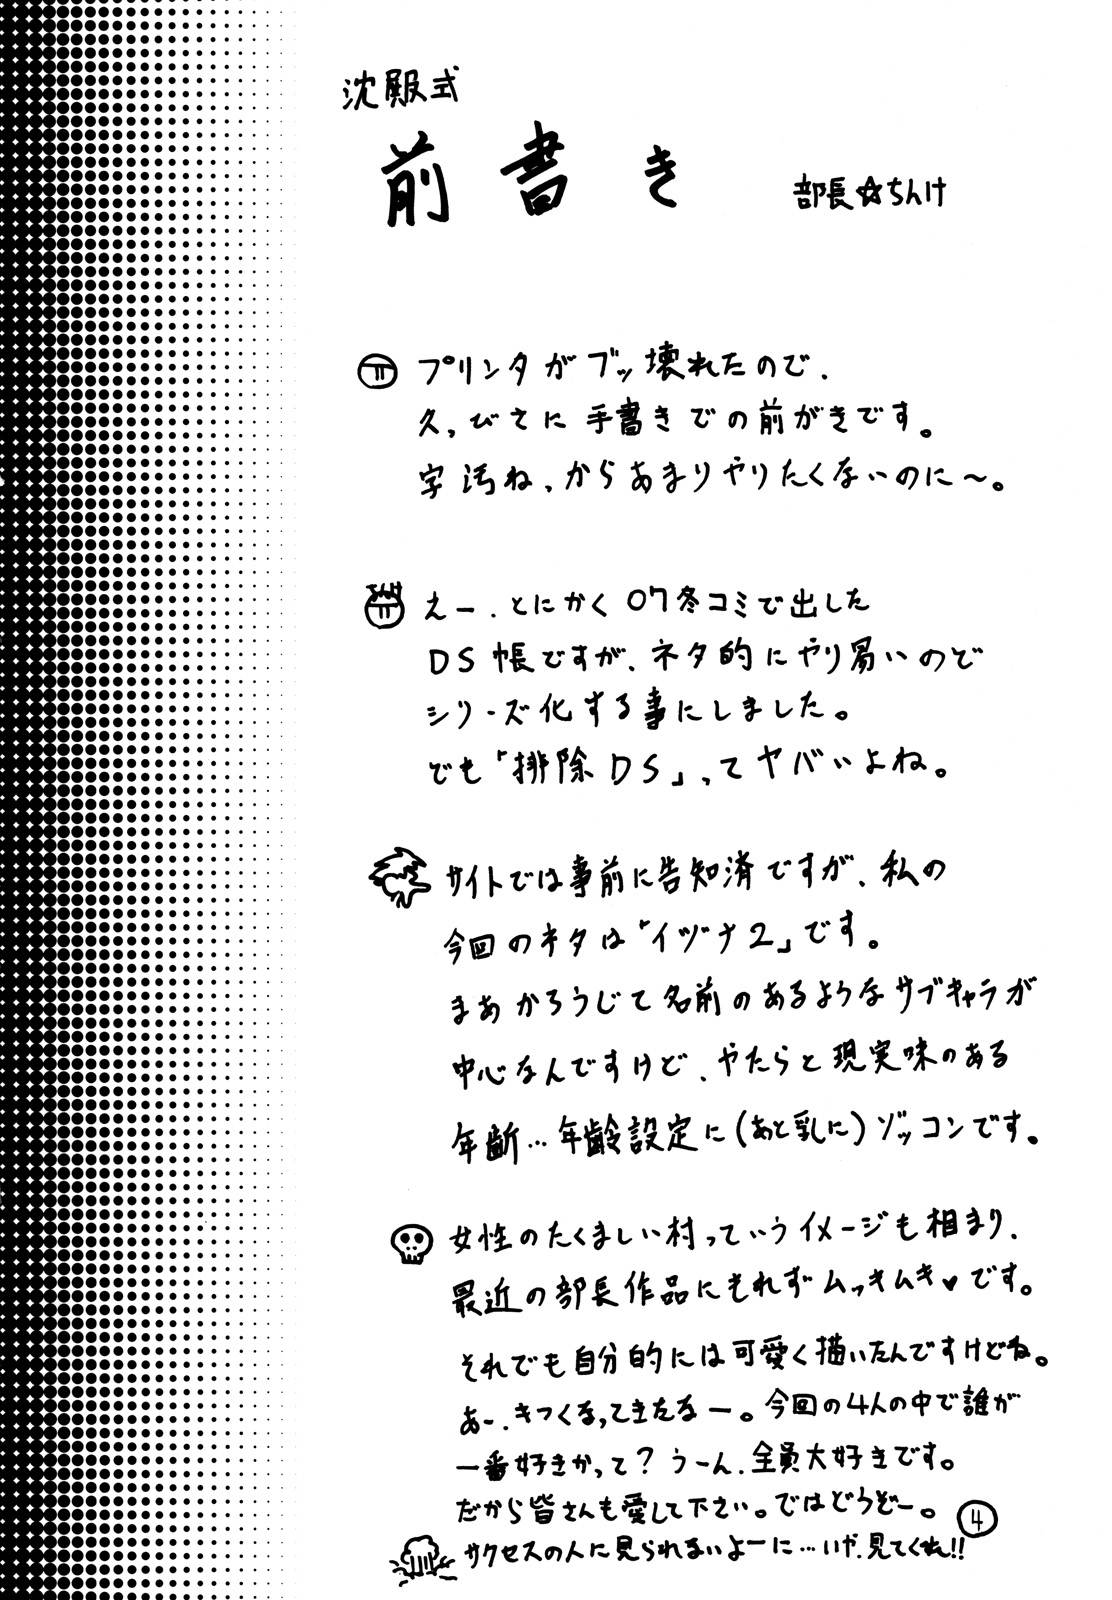 沈殿式
前書き
部長☆ちんけ
プリンタがブッ壊れたので、
久っびさに手書きでの前がきです。
字汚ねっからあまりやりたくないのに〜。
えー、とにかく07冬コミで出した
DS帳ですが、ネタ的にやり易いので
シリーズ化する事にしました。
でも「排除DS」ってヤバいよね。
サイトでは事前に告知済ですが、私の
今回のネタは「イヅナ2」です。
まあかろうじて名前のあるようなサブキャラが
中心なんですけど、やたらと現実味のある
年齢…年齢設定に(あと乳に)ゾッコンです。
女性のたくましい村っていうイメージも相まり、
最近の部長作品にもれずムっきムき♥です。
それでも自分的には可愛く描いたんですけどね。
あー、きつくなってきたなー。今回の4人の中で誰が
一番好きかって?うーん、全員大好きです。
だから皆さんも愛して下さい。ではどうぞー。
4
サクセスの人に見られないよーに…いや、見てくれ!!